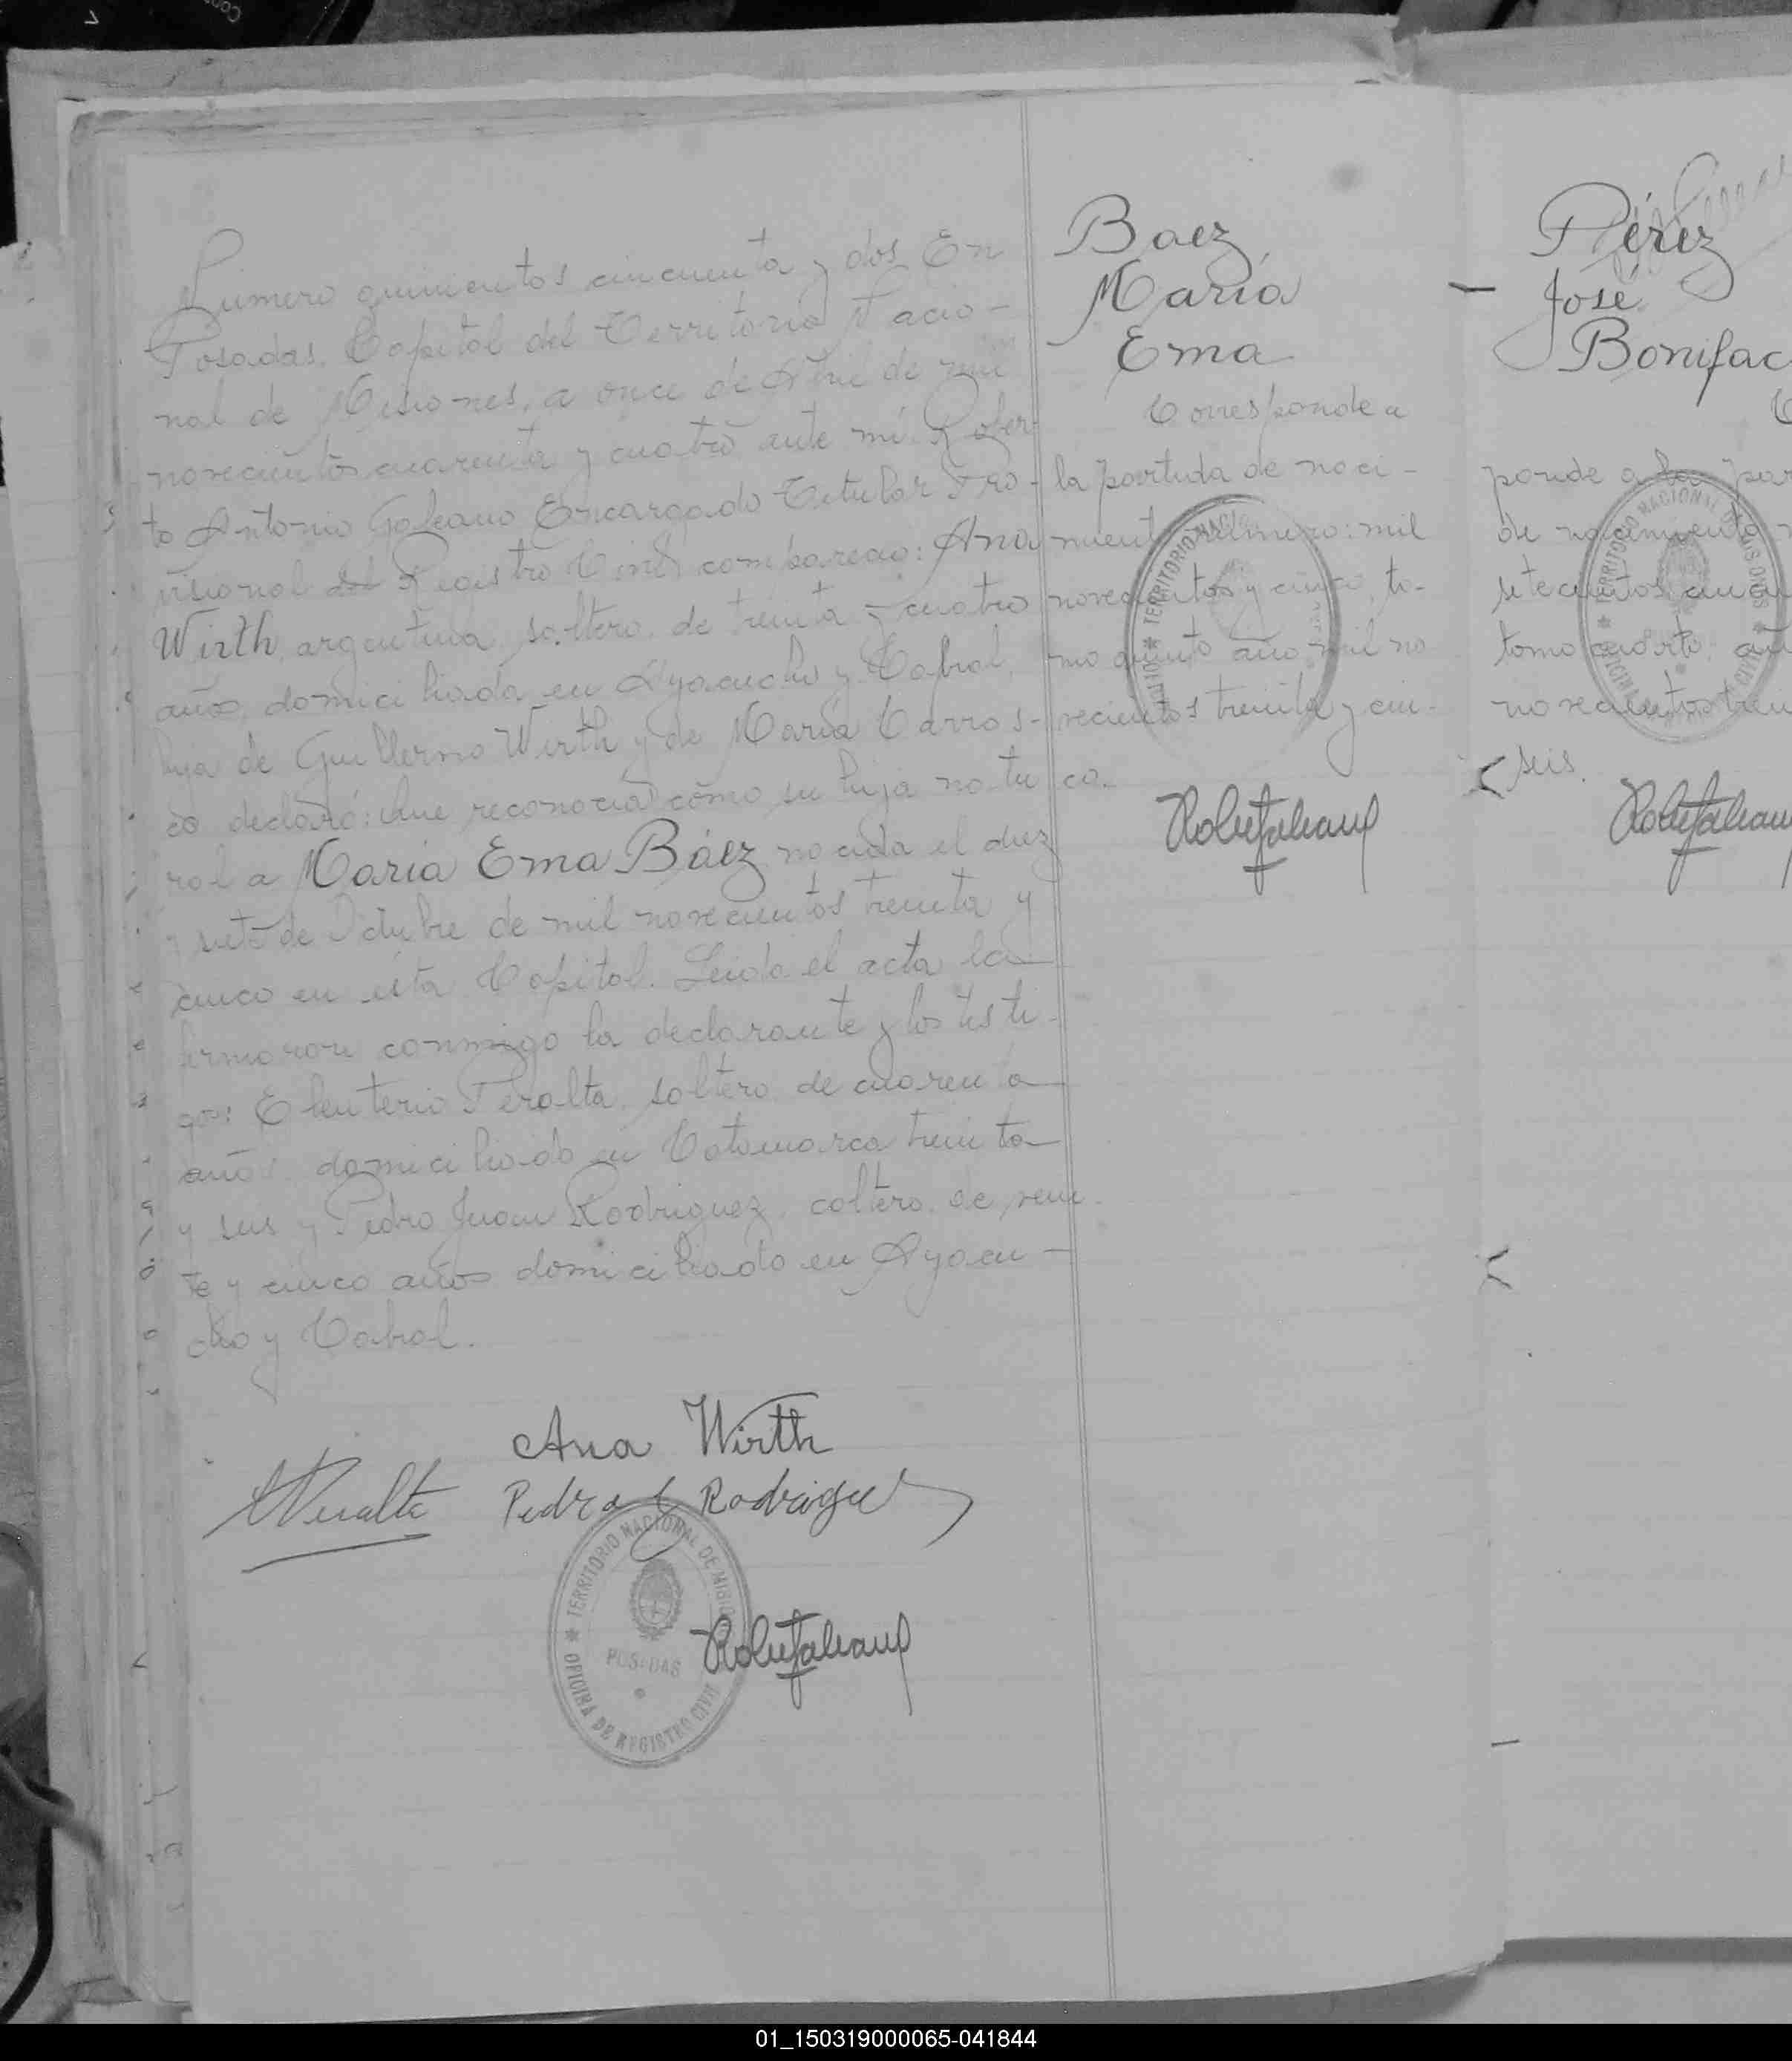 Número quinientos cincuenta y dos En
Posadas, Capital del Territorio Nacio-
nal de Misiones, a once de Abril de mil
novecientos cuarenta y cuatro ante mí Rober-
to Antonio Galeano Encargado Titular Pro-
visional del Registro Civil compareció: Ana
Wirth, argentina, soltera, de treinta y cuatro
años, domiciliada en Ayacucho y Cabral,
hija de Guillermo Wirth y de María Carros-
co declaró: Que reconocía como su hija natu
ral a María Ema Báez nacida el diez
y siete de Octubre de mil novecientos treinta y
cinco en esta Capital. Leida el acta la
firmaron conmigo la declarante y los testi-
gos: Eleuterio Peralta, soltero, de cuarenta
años, domiciliado en Catamarca treinta
y seis y Pedro Juan Rodriguez, coltero, de vein
te y cinco años domiciliado en Ayacu-
cho y Cabral.
Ana Wirth
Peralta Pedro J Rodriguez
TERRITORIO NACIONAL DE MISIO
POSADAS
OFICINA DE REGISTRO CIVIL
Baez
María
Ema
Corresponde a
la partida de naci-
miento número: mil
novecientos y cinco, to-
mo quinto año mil no
vecientos treinta y cin-
co.
TERRITORIO NACIO
Pérez
José
Bonifac
ponde a la par
de nacimiento
setecientos
tomo cuarto, añ
novecientos trein
seis.
TERRITORIO NACIONAL DE MISIONES
OFICINA CIVIL
01_150319000065-041844